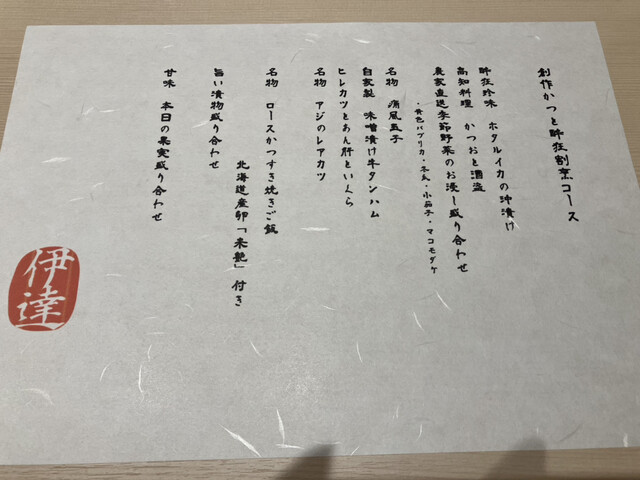 創作かつと酔狂割烹コース
酔狂珍味 ホタルイカの沖漬け
高知料理 かつおと酒盗
農家直送季節野菜のお浸し盛り合わせ
・発色パプリカ・冬瓜・小茄子・マコモダケ
名物 痛風玉子
自家製 味噌漬け牛タンハム
ヒレカツとあん肝といくら
名物 アジのレアカツ
名物 ロースかつすき焼きご飯
北海道産卵「米艶」付き
旨い漬物盛り合わせ
甘味 本日の果実盛り合わせ
伊達